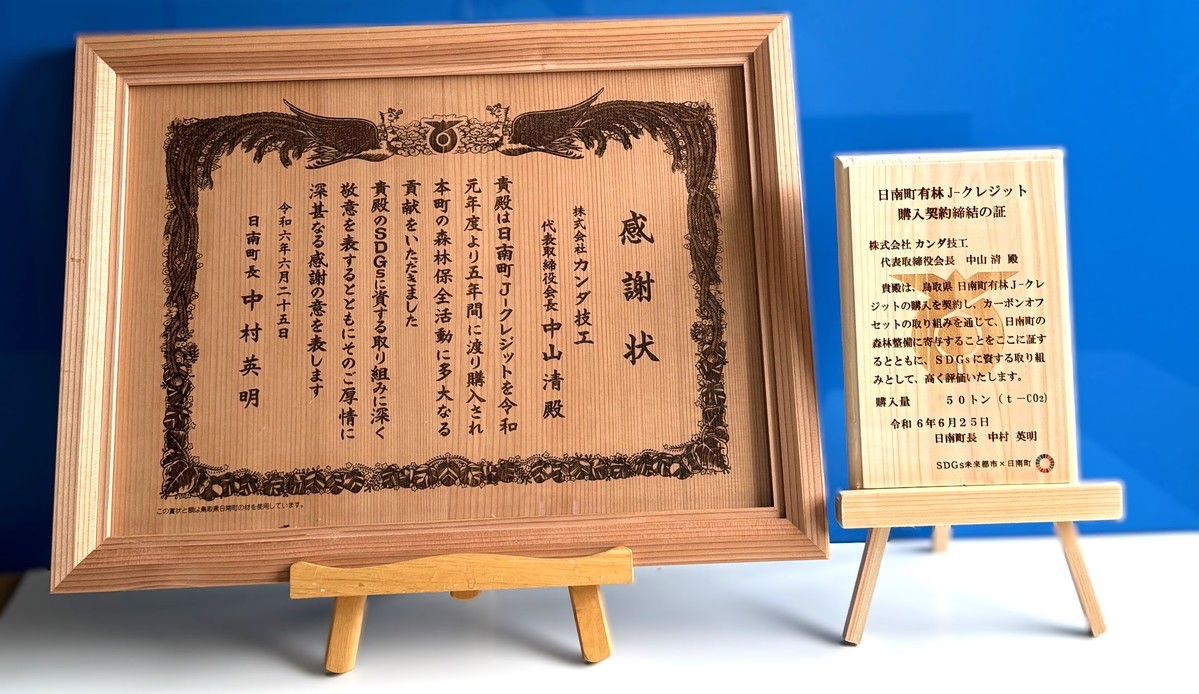 感謝状
株式会社 カンダ技工
代表取締役会長 中山清殿
貴殿は日南町J-クレジットを令和
元年度より五年間に渡り購入され
本町の森林保全活動に多大なる
貢献をいただきました
貴殿のSDGsに資する取り組みに深く
敬意を表するとともにそのご厚情に
深甚なる感謝の意を表します
令和六年六月二十五日
日南町長 中村英明
この賞状と額は鳥取県日南町の材を使用しています。
日南町有林 J-クレジット
購入契約締結の証
株式会社 カンダ技工
代表取締役会長 中山 清 殿
貴殿は、鳥取県 日南町有林J-クレ
ジットの購入を契約し、カーボンオフ
セットの取り組みを通じて、日南町の
森林整備に寄与することをここに証す
るとともに、SDGsに資する取り組
みとして、高く評価いたします。
購入量 50トン(t-CO2)
令和 6年6月25日
日南町長 中村 英明
SDGs未来都市×日南町